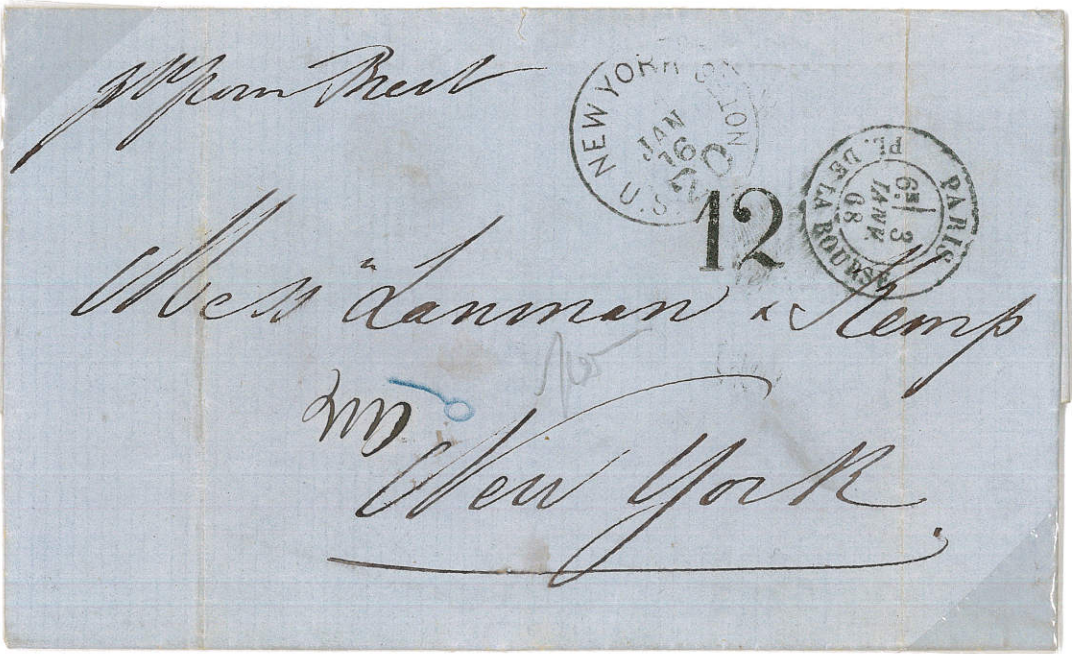 pr Vapeur Brest
NEW YORK
JAN
16
U.S. 20
12
PARIS
PL. DE LA BOURSE
6E 3
JANV.
68
Mess Lanman & Kemp
New York